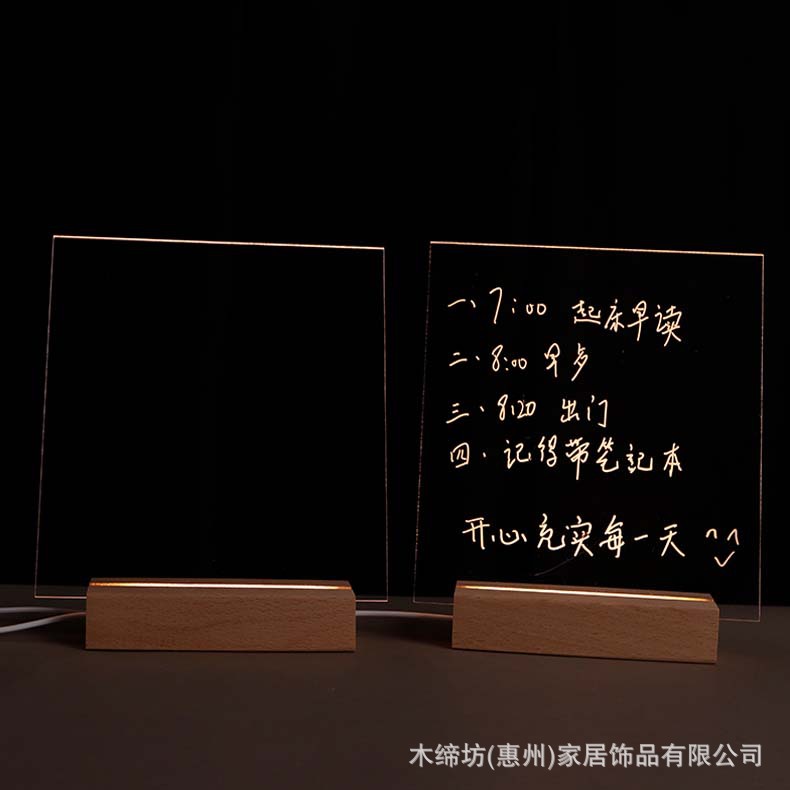 一、7:00 起床早读
二、8:00 早步
三、8:20 出门
四、记得带笔记本
开心充实每一天
木缔坊(惠州)家居饰品有限公司